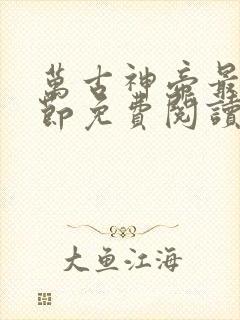 萬古神帝最
節免費閱讀
大鱼江海